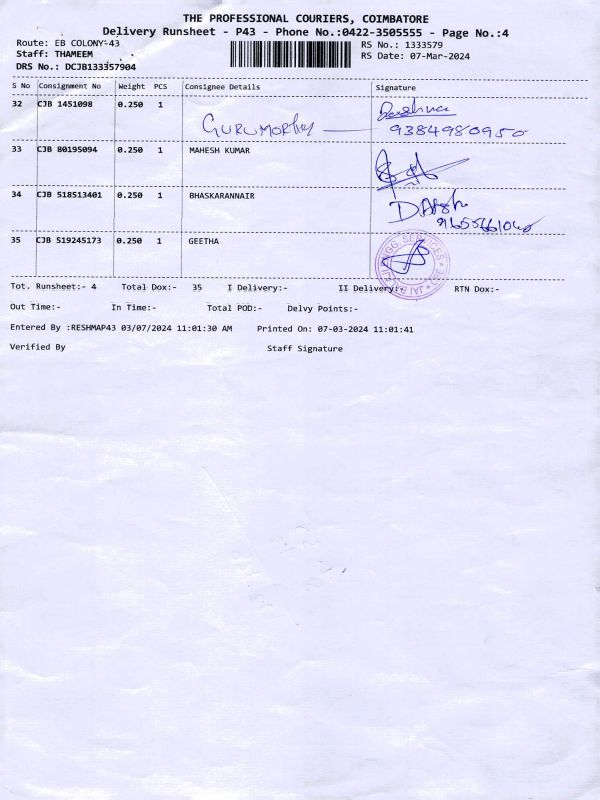 THE PROFESSIONAL COURIERS, COIMBATORE
Delivery Runsheet - P43 - Phone No.:0422-3505555 - Page No.:4
Route: EB COLONY-43
RS No.: 1333579
Staff: THAMEEM
RS Date: 07-Mar-2024
DRS No.: DCJB133357904
S No Consignment No Weight PCS Consignee Details Signature
32 CJB 1451098 0.250 1
GURUMORTHY 9384980950
33 CJB 80195094 0.250 1 MAHESH KUMAR
34 CJB 518513401 0.250 1 BHASKARANNAIR
35 CJB 519245173 0.250 1 GEETHA
Tot. Runsheet:- 4 Total Dox:- 35 I Delivery:- II Delivery:- RTN Dox:-
Out Time:- In Time:- Total POD:- Delvy Points:-
Entered By :RESHMAP43 03/07/2024 11:01:30 AM Printed On: 07-03-2024 11:01:41
Verified By Staff Signature